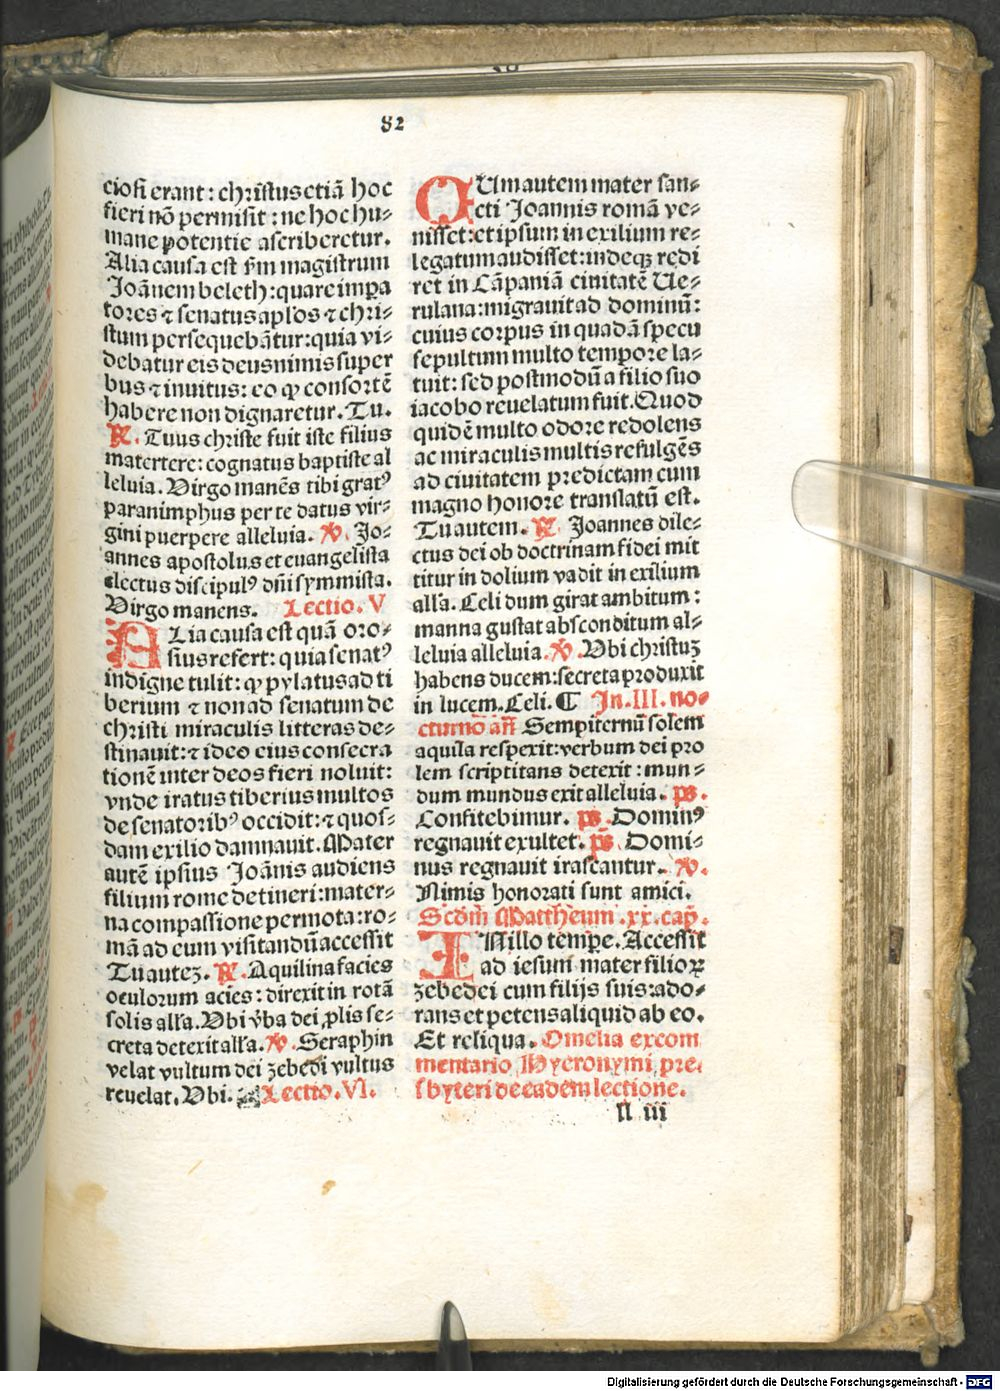 82
ciosi erant : christus etiā hoc
fieri nō permisit : ne hoc hu⸗
mane potentie ascriberetur.
Alia causa est ẜm magistrum
Joānem beleth : quare impa
tores ⁊ senatus apl'os ⁊ chri⸗
stum persequebātur : quia vi⸗
debatur eis deus nimis super
bus ⁊ inuitus : eo ꝙ consortē
habere non dignaretur. Tu.
℟. Tuus christe fuit iste filius
matertere : cognatus baptiste al
leluia. Virgo manēs tibi gratꝰ
paranimphus per te datus vir⸗
gini puerpere alleluia. ℣. Jo⸗
annes apostolus et euangelista
electus discipulꝰ dn̄i symmista.
Virgo manens. Lectio. V
ALia causa est quā oro⸗
sius refert : quia senatꝰ
indigne tulit : ꝙ pylatus ad ti
berium ⁊ non ad senatum de
christi miraculis litteras de⸗
stinauit : ⁊ ideo eius consecra
tionē inter deos fieri noluit :
vnde iratus tiberius multos
de senatoribꝰ occidit : ⁊ quos⸗
dam exilio damnauit. Mater
autē ipsius Joānis audiens
filium rome detineri : mater⸗
na compassione permota : ro⸗
mā ad eum visitandū accessit
Tu autez. ℟. Aquilina facies
oculorum acies : direxit in rotā
solis all'a. Vbi v̄ba dei ꝓlis se⸗
creta detexit all'a. ℣. Seraphin
velat vultum dei zebedi vultus
reuelat. Vbi. Lectio. VI.
CUm autem mater san⸗
cti Joannis romā ve⸗
nisset : et ipsum in exilium re⸗
legatum audisset : indeqꝫ redi
ret in Cāpaniā ciuitatē Ue⸗
rulana : migrauit ad dominū :
cuius corpus in quadā specu
sepultum multo tempore la⸗
tuit : sed postmodū a filio suo
iacobo reuelatum fuit. Quod
quidē multo odore redolens
ac miraculis multis refulgēs
ad ciuitatem predictam cum
magno honore translatū est.
Tu autem. ℟. Joannes dile⸗
ctus dei ob doctrinam fidei mit
titur in dolium vadit in exilium
all'a. Celi dum girat ambitum :
manna gustat absconditum al⸗
leluia alleluia. ℣. Vbi christuꝫ
habens ducem : secreta produxit
in lucem. Celi. ¶ In. III. no⸗
cturno an̄ Sempiternū solem
aquila respexit : verbum dei pro
lem scriptitans detexit : mun⸗
dum mundus exit alleluia. ps.
Confitebimur. ps. Dominꝰ
regnauit exultet. ps. Domi⸗
nus regnauit irascantur. ℣.
Nimis honorati sunt amici.
Scdm̄ Mattheum .xx. cap̄.
IN illo tempe. Accessit
ad iesum mater filioꝝ
zebedei cum filijs suis : ado⸗
rans et petens aliquid ab eo.
Et reliqua. Omelia ex com
mentario Hyeronymi pre⸗
sbyteri de eadem lectione.
ll iii
Digitalisierung gefördert durch die Deutsche Forschungsgemeinschaft - DFG